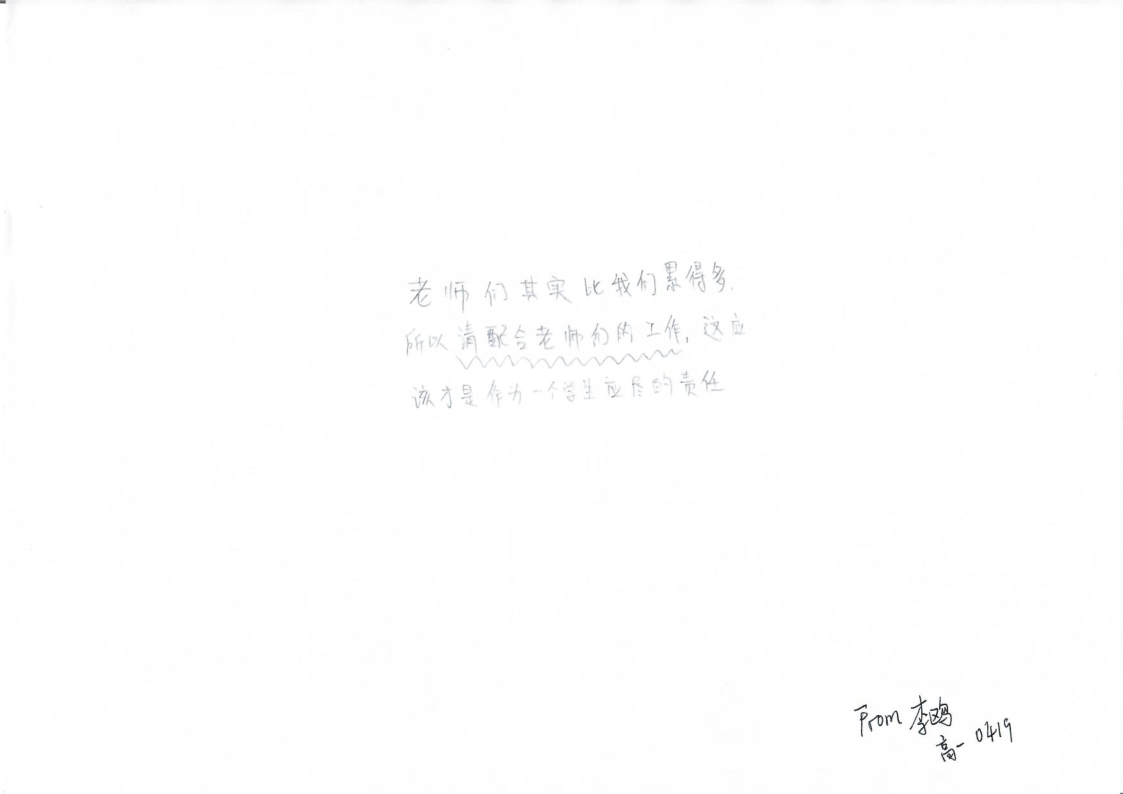 老师们其实比我们累得多.
所以请配合老师们的工作, 这应
该才是作为一个学生应尽的责任
From 李鸥
高一 0419